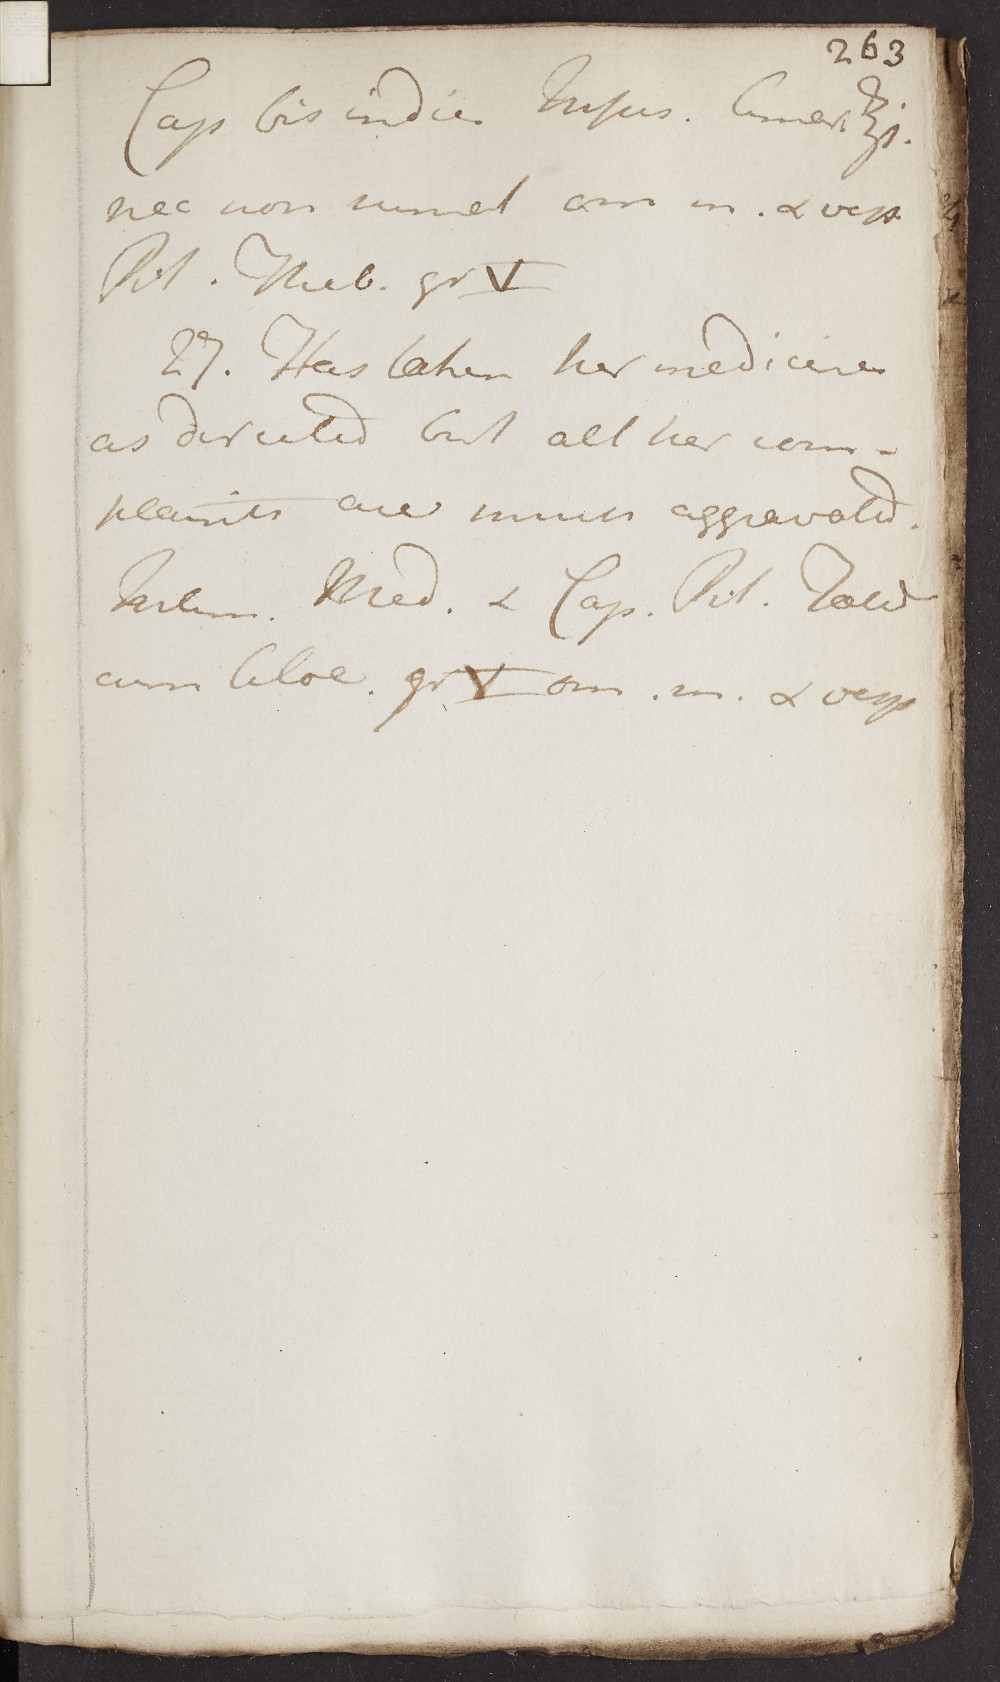 263
Cap bis indies Infus. Amar. ℥j.
nec non semel om m. & vesp
Pil. Theb. gr V
27. Has taken her medicines
as directed but all her com-
plaints are much aggravated.
Med. & Cap. Pil. Foetid
cum Aloe. gr V om. m. & vesp